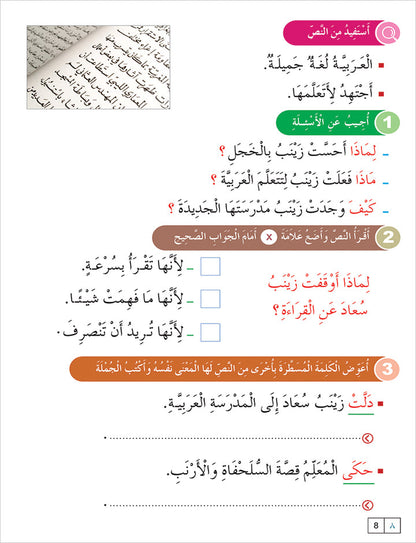 أَسْتَفِيدُ مِنَ النَّصِّ
الْعَرَبِيَّةُ لُغَةٌ جَمِيلَةٌ.
أَجْتَهِدُ لِأَتَعَلَّمَهَا.
1 أُجِيبُ عَنِ الْأَسْئِلَةِ
_ لِمَاذَا أَحَسَّتْ زَيْنَبُ بِالْخَجَلِ ؟
_ مَاذَا فَعَلَتْ زَيْنَبُ لِتَتَعَلَّمَ الْعَرَبِيَّةَ ؟
_ كَيْفَ وَجَدَتْ زَيْنَبُ مَدْرَسَتَهَا الْجَدِيدَةَ ؟
2 أَقْرَأُ النَّصَّ وَأَضَعُ عَلَامَةَ x أَمَامَ الْجَوَابِ الصَّحِيحِ
لِمَاذَا أَوْقَفَتْ زَيْنَبُ
سُعَادَ عَنِ الْقِرَاءَةِ ؟
_ لِأَنَّهَا تَقْرَأُ بِسُرْعَةٍ.
_ لِأَنَّهَا مَا فَهِمَتْ شَيْئًا.
_ لِأَنَّهَا تُرِيدُ أَنْ تَنْصَرِفَ.
3 أُعَوِّضُ الْكَلِمَةَ الْمُسَطَّرَةَ بِأُخْرَى مِنَ النَّصِّ لَهَا الْمَعْنَى نَفْسُهُ وَأَكْتُبُ الْجُمْلَةَ
دَلَّتْ زَيْنَبُ سُعَادَ إِلَى الْمَدْرَسَةِ الْعَرَبِيَّةِ.
حَكَى الْمُعَلِّمُ قِصَّةَ السُّلَحْفَاةِ وَالْأَرْنَبِ.
8 ٨